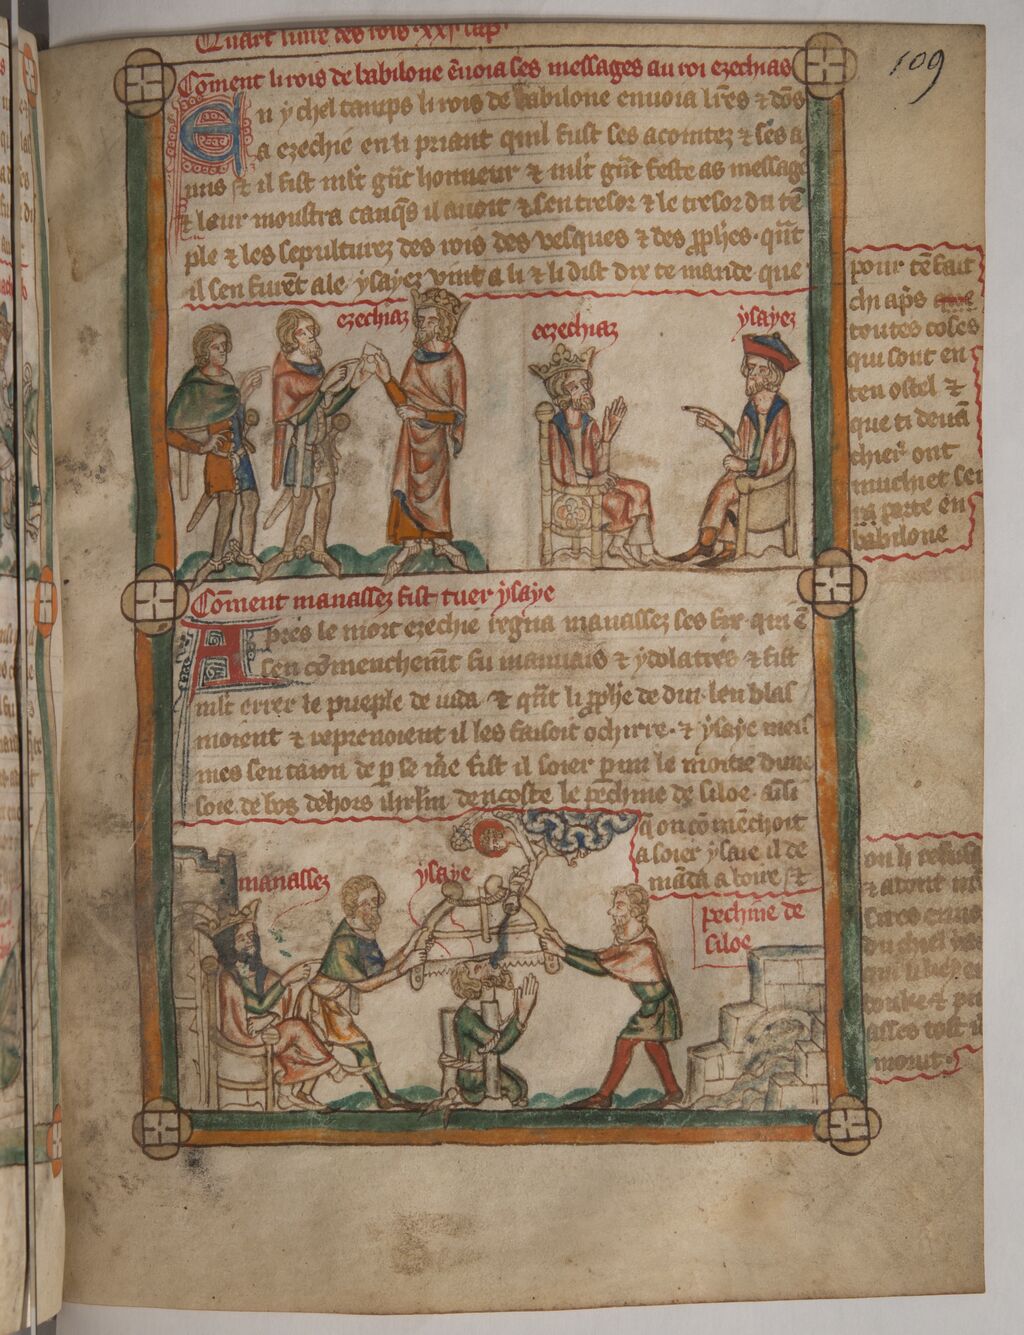 Quart liure des rois .xxi. cap.
109
Coment li rois de babilone ẽuoia ses messages au roi ezechias
En ychel tamps li rois de babilone enuoia lr̃es ⁊ dõs
a ezechie en li priant quil fust ses acointez ⁊ ses a
mis ⁊ il fist ml̃t gr̃t honneur ⁊ ml̃t gr̃t feste as messag
⁊ leur moustra canq̃s il auoit ⁊ sen tresor ⁊ le tresor du tẽ
ple ⁊ les sepulturez des rois des vesques ⁊ des p̃ph̃es . qñt
il sen furẽt ale ysayez vint a li ⁊ li dist dix te mande que
pour tẽ fait
chi ap̃s que
toutes coses
qui sont en
ten ostel ⁊
que ti deuã
chier ont
muchiet se
ra porte en
babilone
ezechiaz
ezechiaz
ysayez
Cõment manassez fist tuer ysaye
Apres le mort ezechie regna manassez ses fix qui ẽ
sen cõmenchemt̃ fu mauuais ⁊ ydolatres ⁊ fist
ml̃t errer le pueple de iuda . ⁊ qñt li p̃ph̃e de diu len blas
moient ⁊ reprenoient il les faisoit ochirre . ⁊ ysaye meis
mes sen taion de p̃ se me᷑ fist il soier p̃mi le moitie dune
soie de bos dehors ihrlm̃ dencoste le pechine de siloe . ausi
q̃ on cõmẽchoit
a soier ysaie il de
mãda a boire ⁊
on li refusa
⁊ adont
sires enuo
du chiel
qui li
bouke ⁊
asses tost il
morut .
manassez
ysaye
pechine de
siloe